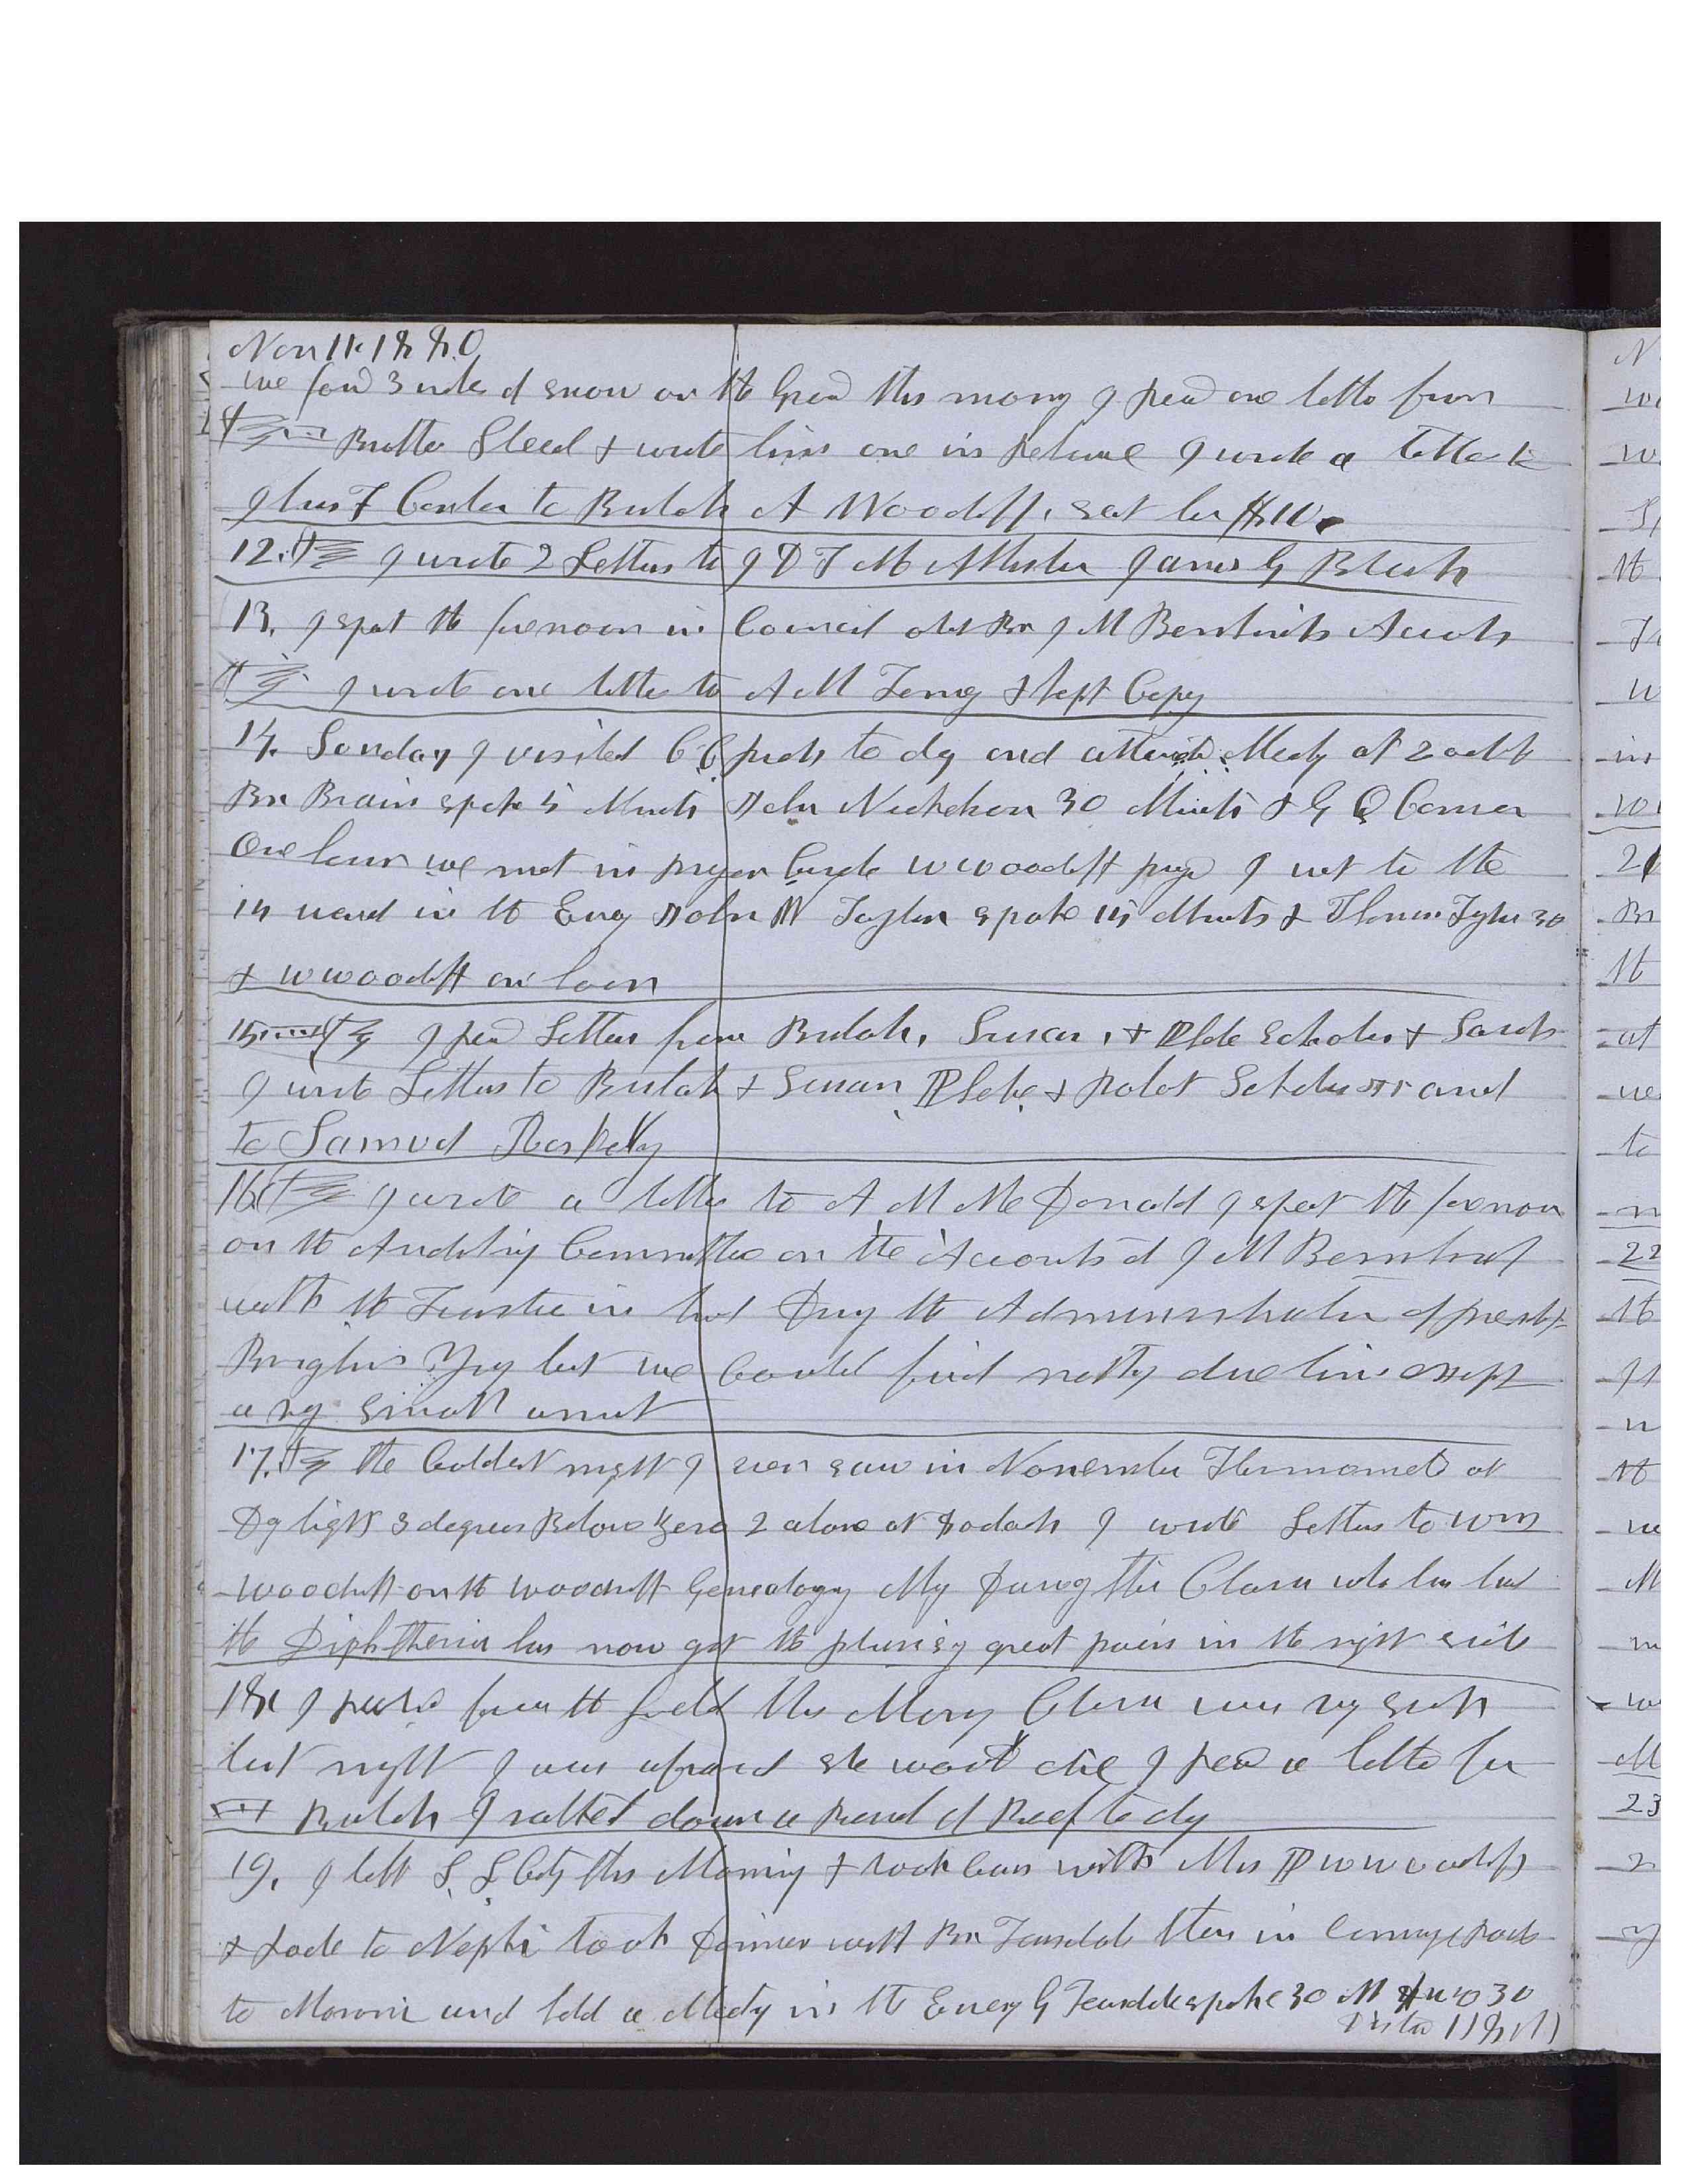 Nov 11. 1880
we found 3 inches of snow on the Ground this morning I recd one letter from
Brother Sleed & wrote him one in return I wrote a letter to
& Center to Bulah A Woodruff, sent her $10.
12. I wrote 2 Letters to J D T McAllister James G Bleak
13. I spent the forenoon in Council on Br J M Bernhisels Accounts
I wrote one letter to A M Tenny & kept Copy
14. Sunday I visited to day and attended Meeting at 2 oclok
Br Brain spoke 5 Minuts John Nicholson 30 Minuts & G Q Cannon
One hour we met in prayer Circle W Woodruff prayed I went to the
14 ward in the Evening John W Taylor spoke 15 Minuts & Thomas Tyler 30
& W Woodruff one hour
15 I recd Letters from Bulah, Susan, & Phebe Scholes & Sarah
I wrote Letters to Bulah & Susan Phebe & Robert Scholes and
to Samuel Roskelly
16 I wrote a letter to A M McDonald I spent the forenoon
on the Auditing Committee on the Accounts of J M Bernhisel
with the Trustee in trust During the Administration of presidt
Brigham Young but we Could find nothing due him except
a very small amount
17. the Coldest night I ever saw in November Thermometer at
Daylight 3 degrees Below Zero 2 above at 8 oclock I wrote Letters to Wm
Woodruff on the Woodruff Genealogy My Daughter Clara who has had
the Diphtheria has now got the plurisy great pain in the right side
18 I from the field this Morning Clara was very sick
last night I was afraid she would die I recd a letter from
Bulah I salted down a Barrel of Beef to day
19. I left S. L. City this Morning & took Cars with Mrs P W Woodruff
& Rode to Nephi took Dinner with Br Teasdale then in Carriage Rode
to Moroni and held a Meeting in the Evening G Teasdale spoke 30 M & W W 30
Distance 118 M